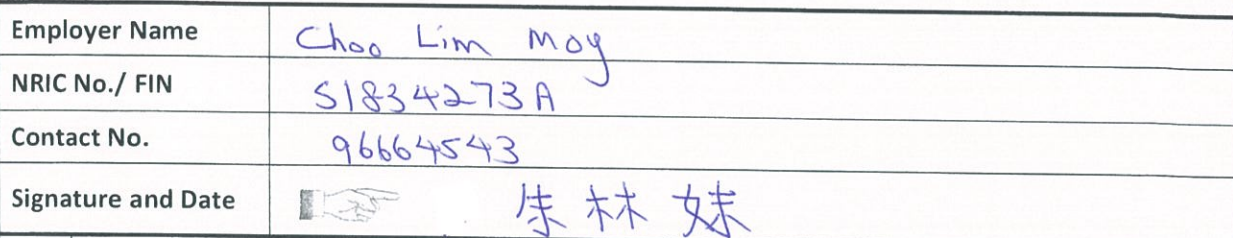 Employer Name Choo Lim Moy
NRIC No./ FIN S1834273A
Contact No. 96664543
Signature and Date 朱林妹